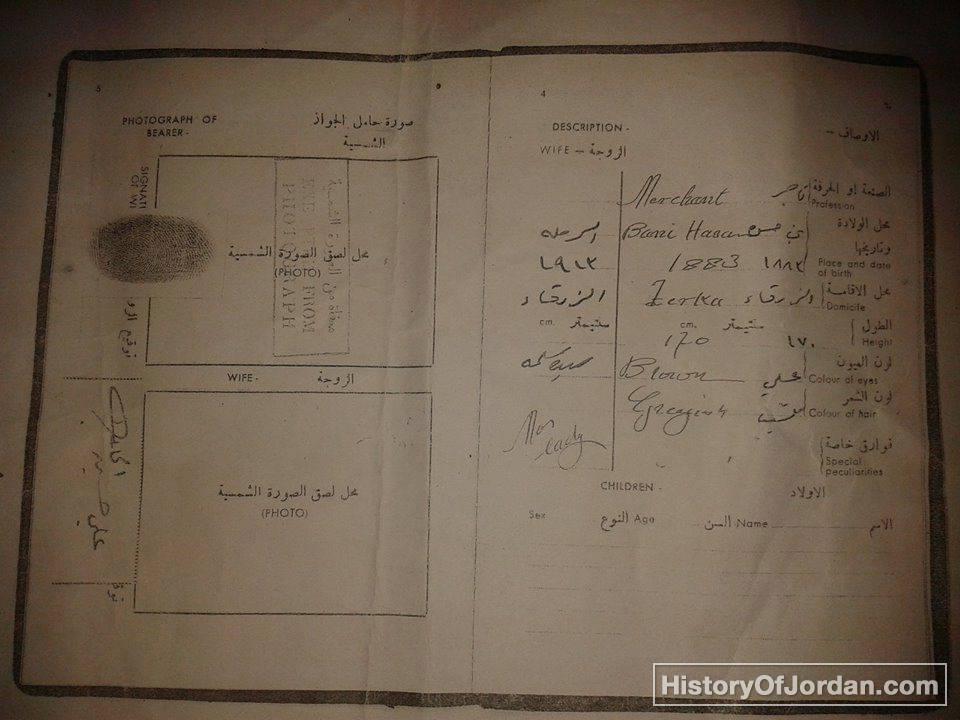 5
PHOTOGRAPH OF BEARER -
صورة حامل الجواز
الشمسية
معفاة من الصورة الشمسية
FREE FROM
PHOTOGRAPH
محل لصق الصورة الشمسية
(PHOTO)
WIFE - الزوجة
محل لصق الصورة الشمسية
(PHOTO)
4
DESCRIPTION - الاوصاف -
WIFE - الزوجة
Merchant تاجر الصنعة او الحرفة
Profession
Bani Hasan بني حسن محل الولادة
وتاريخها
١٩١٣ 1883 ١٨٨٣ Place and date of birth
الزرقاء Zerka الزرقاء محل الاقامة
Domicile
cm. سنتيمتر cm. سنتيمتر الطول
170 ١٧٠ Height
Brown عسلي لون العيون
Colour of eyes
Greyish لون الشعر
Colour of hair
فوارق خاصة
Special peculiarities
CHILDREN - الاولاد
Sex النوع Age السن Name الاسم
HistoryOfJordan.com